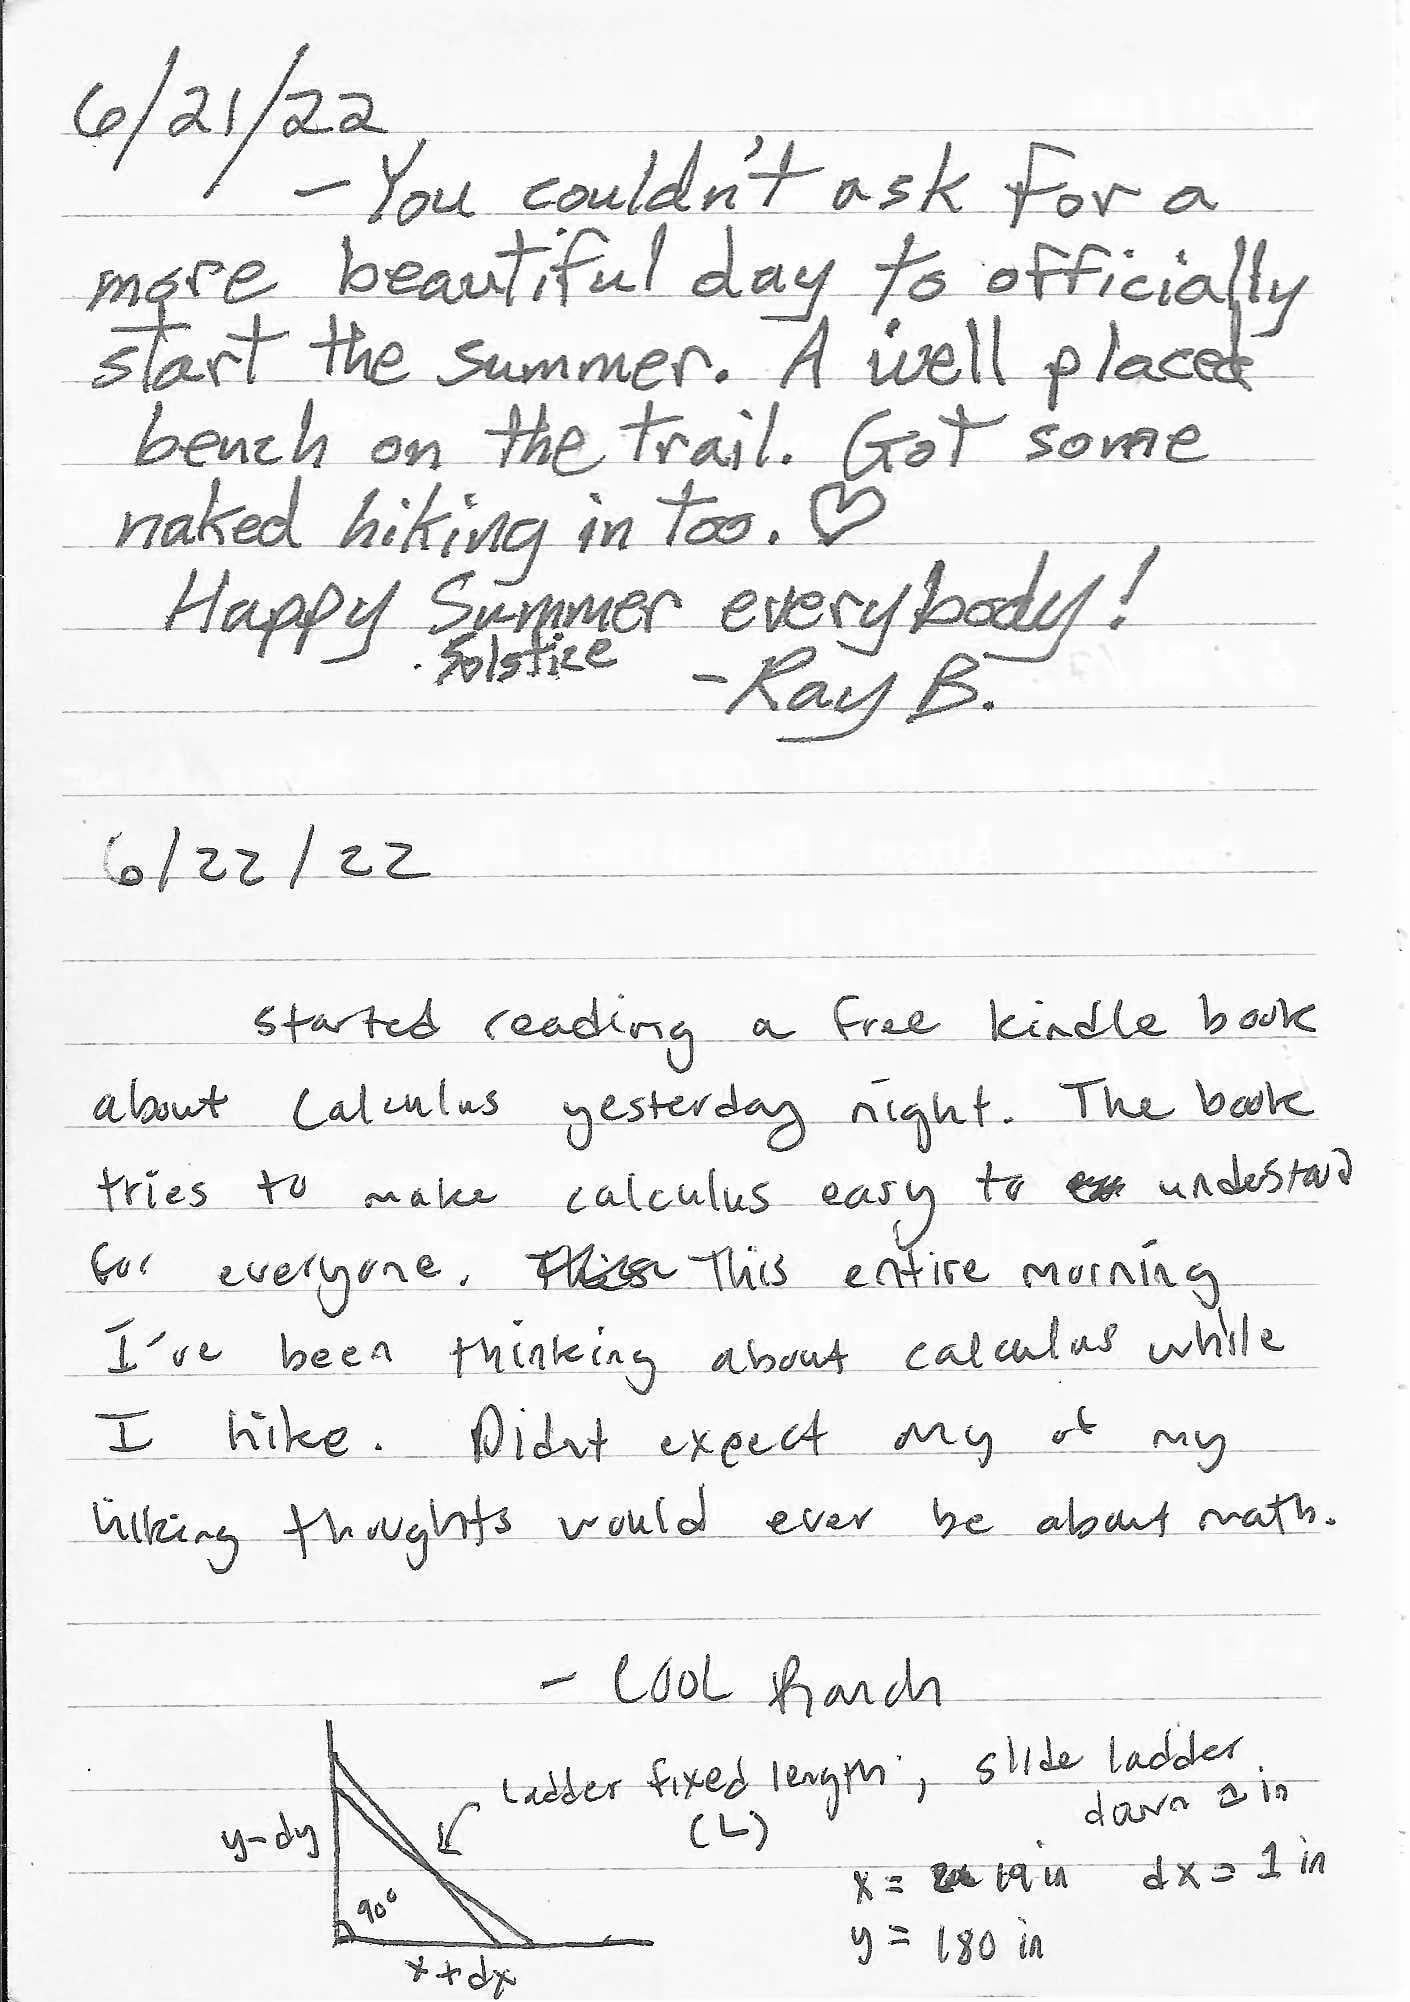 6/21/22
- You couldn't ask for a
more beautiful day to officially
start the summer. A well placed
bench on the trail. Got some
naked hiking in too. ♡
Happy Summer everybody!
Solstice
- Ray B.
6/22/22
started reading a free kindle book
about calculus yesterday night. The book
tries to make calculus easy to undestand
for everyone. This This entire morning
I've been thinking about calculus while
I hike. Didnt expect any of my
hiking thoughts would ever be about math.
- COOL Ranch
Ladder fixed length, slide ladder
(L) down 1 in
y-dy
x = 19 in dx = 1 in
90°
y = 180 in
x+dx